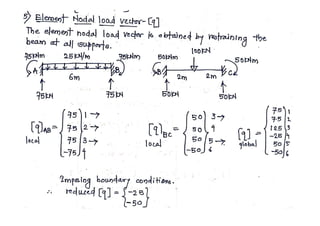 5) Element Nodal load vector-[q]
The element nodal load vector is obtained by restraining the
beam at all supports.
75kNm 25kN/m 75kNm 50kNm 100kN 50kNm
A B B C
6m 2m 2m
75kN 75kN 50kN 50kN
[q]AB = {75 75 75 -75} 1→ 2→ 3→ 4
local
[q]BC = {50 50 50 -50} 3→ 4 5→ 6
local
[q] = {75 75 125 -25 50 -50} 1 2 3 4 5 6
global
Imposing boundary conditions.
∴ reduced [q] = {-25 -50}